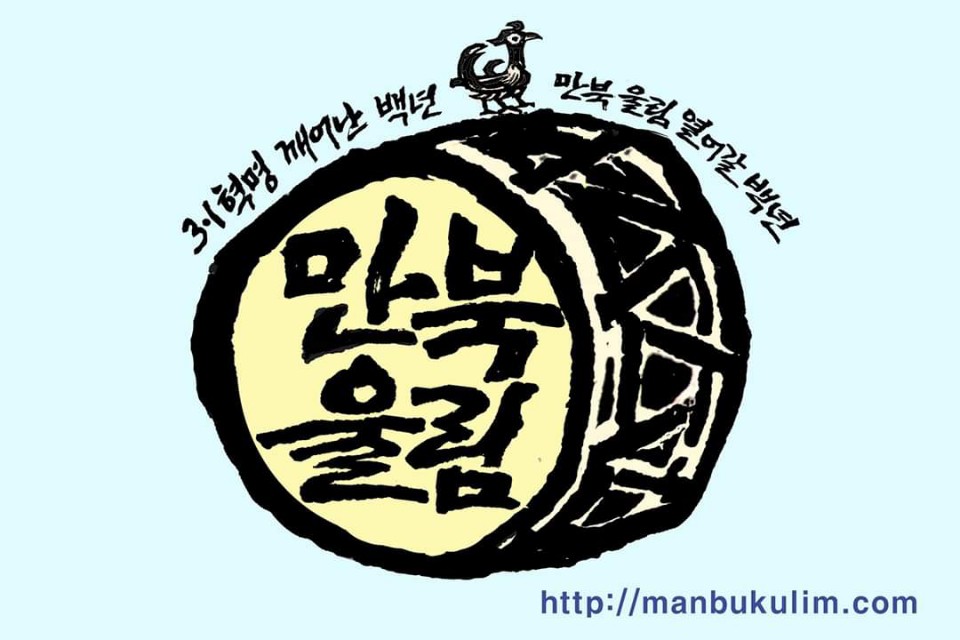 3·1혁명 깨어난 백년
만북울림 열어갈 백년
만북
울림
http://manbukulim.com